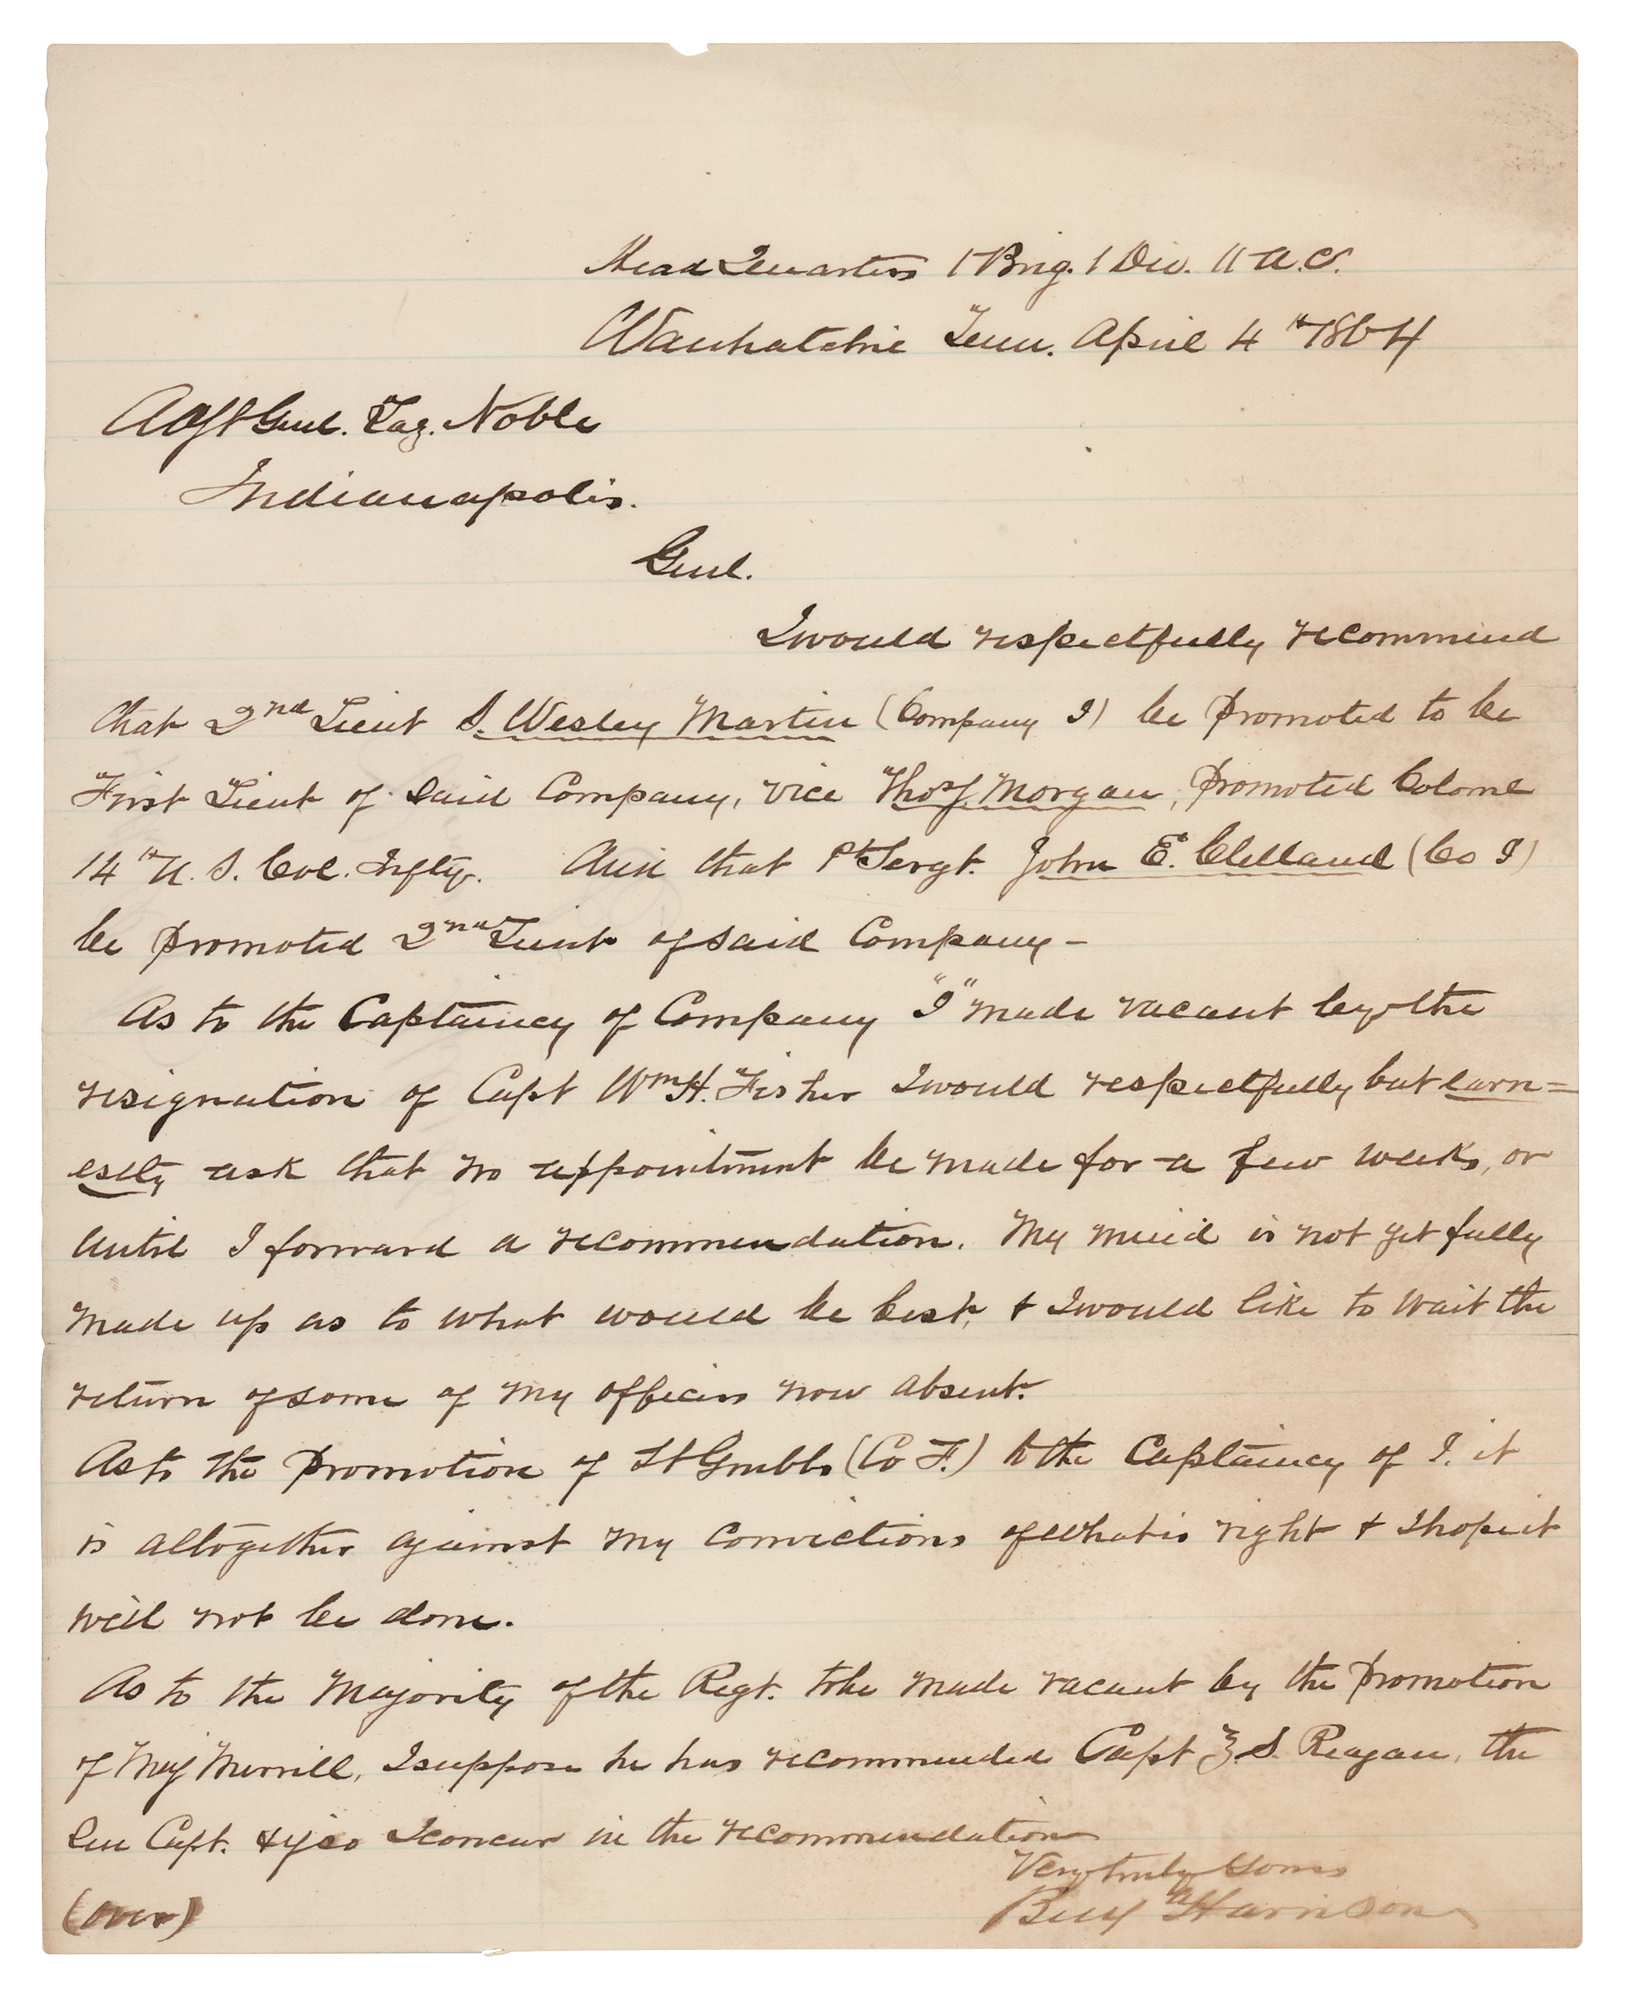 Head Quarters 1 Brig. 1 Div. 11 A.C.
Wauhatchie Tenn. April 4th 1864
Adjt Genl. Laz. Noble
Indianapolis.
Genl.
I would respectfully recommend
that 2nd Lieut S. Wesley Martin (Company I) be promoted to be
First Lieut of said Company, vice Thos J. Morgan, promoted Colonel
14th U. S. Col. Infty. And that 1st Sergt. John E. Clelland (Co I)
be promoted 2nd Lieut of said Company –
As to the Captaincy of Company "I" made vacant by the
resignation of Capt Wm H. Fisher I would respectfully but earn=
estly ask that no appointment be made for a few weeks, or
until I forward a recommendation. My mind is not yet fully
made up as to what would be best, & I would like to wait the
return of some of my officers now absent.
As to the promotion of Lt Grubbs (Co F.) to the Captaincy of I. it
is altogether against my convictions of what is right & I hope it
will not be done.
As to the Majority of the Regt. to be made vacant by the promotion
of Maj Merrill, I suppose he has recommended Capt Z. S. Reagan, the
Sen Capt. & if so I concur in the recommendation
Very truly Yours
Benj Harrison
(over)